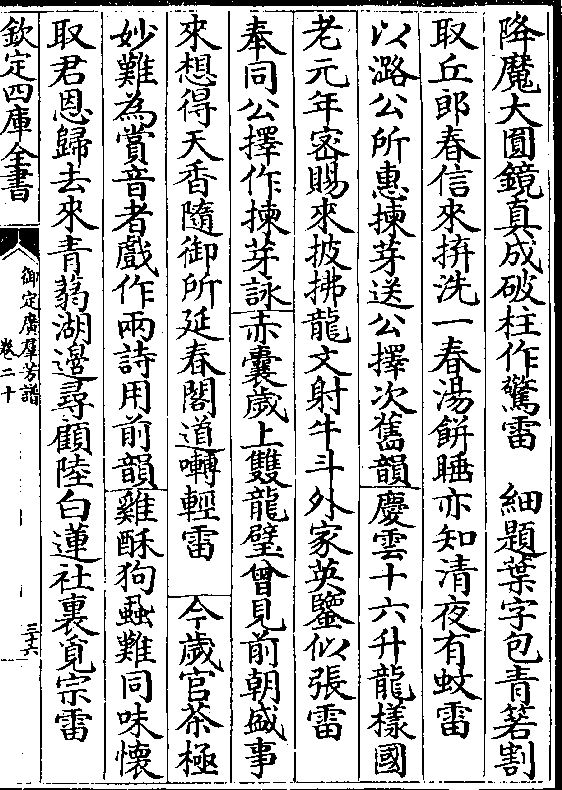 降魔大圓鏡真成破柱作驚雷　細題葉字包青篛割
取丘郎春信來拚洗一春湯餅睡亦知清夜有蚊雷
以潞公所惠揀芽送公擇次舊韻慶雲十六升龍樣國
老元年密賜來披拂龍文射牛斗外家英鑒似張雷
奉同公擇作揀芽詠赤囊歲上雙龍璧曾見前朝盛事
來想得天香隨御所延春閣道囀輕雷　今歲官茶極
妙難為賞音者戲作兩詩用前韻雞酥狗蝨難同味懷
取君恩歸去來青蒻湖邊尋顧陸白蓮社裏覓宗雷
欽定四庫全書
御定廣羣芳譜
卷二十
三十六